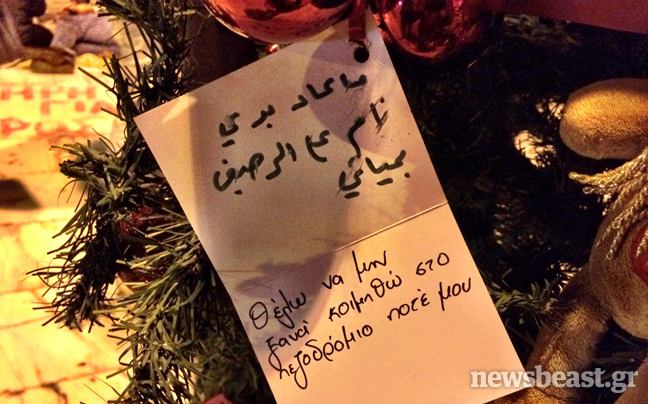 ما عاد بدي
نام ع الرصيف
بحياتي
Θέλω να μην
ξανά κοιμηθώ στο
πεζοδρόμιο ποτέ μου
newsbeast.gr